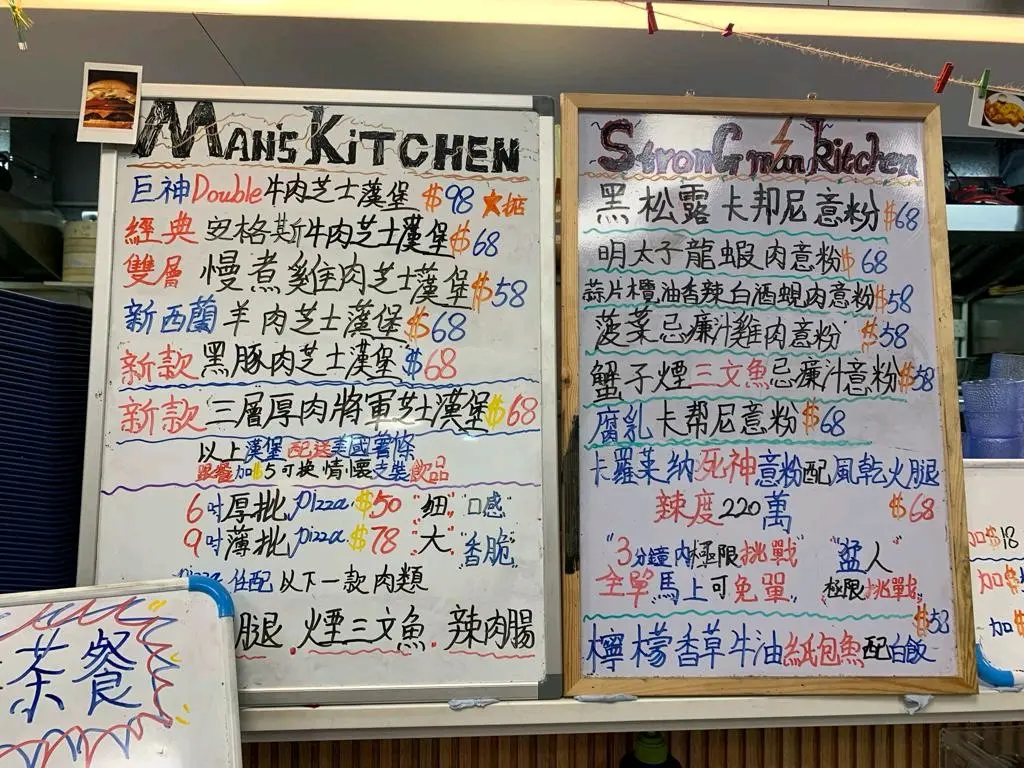 MAN'S KiTCHEN
巨神Double牛肉芝士漢堡 $98 ★掂
經典 安格斯牛肉芝士漢堡$68
雙層 慢煮雞肉芝士漢堡$58
新西蘭羊肉芝士漢堡$68
新款 黑豚肉芝士漢堡 $68
新款 三層厚肉將軍芝士漢堡$68
以上漢堡配送美國薯條
跟餐加$5可換情懷支裝飲品
6吋厚批 pizza $50 "細" "口感"
9吋薄批 pizza $78 "大" "香脆"
pizza 任配以下一款肉類
腿.煙三文魚.辣肉腸
StronG man kitchen
黑松露卡邦尼意粉$68
明太子龍蝦肉意粉$68
蒜片欖油香辣白酒蜆肉意粉$58
菠菜忌廉汁雞肉意粉 $58
蟹子煙三文魚忌廉汁意粉$58
腐乳卡幫尼意粉$68
卡羅萊納死神意粉配風乾火腿
辣度220萬 $68
"3分鐘內極限挑戰" "猛人"
全單馬上可免單" 極限挑戰"
$58
檸檬香草牛油紙包魚配白飯
茶餐
$18
加$
加$